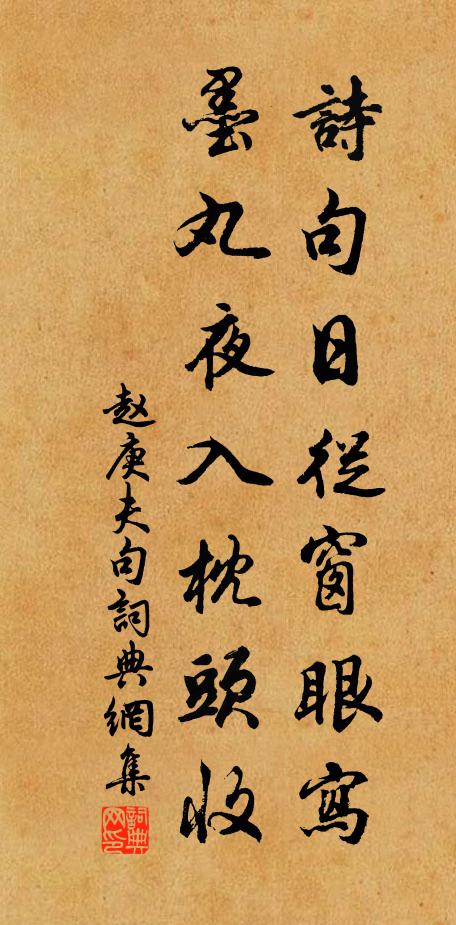 詩句日從窗眼寫
墨丸夜入枕頭收
赵庚夫句詞典網集
詞典網印